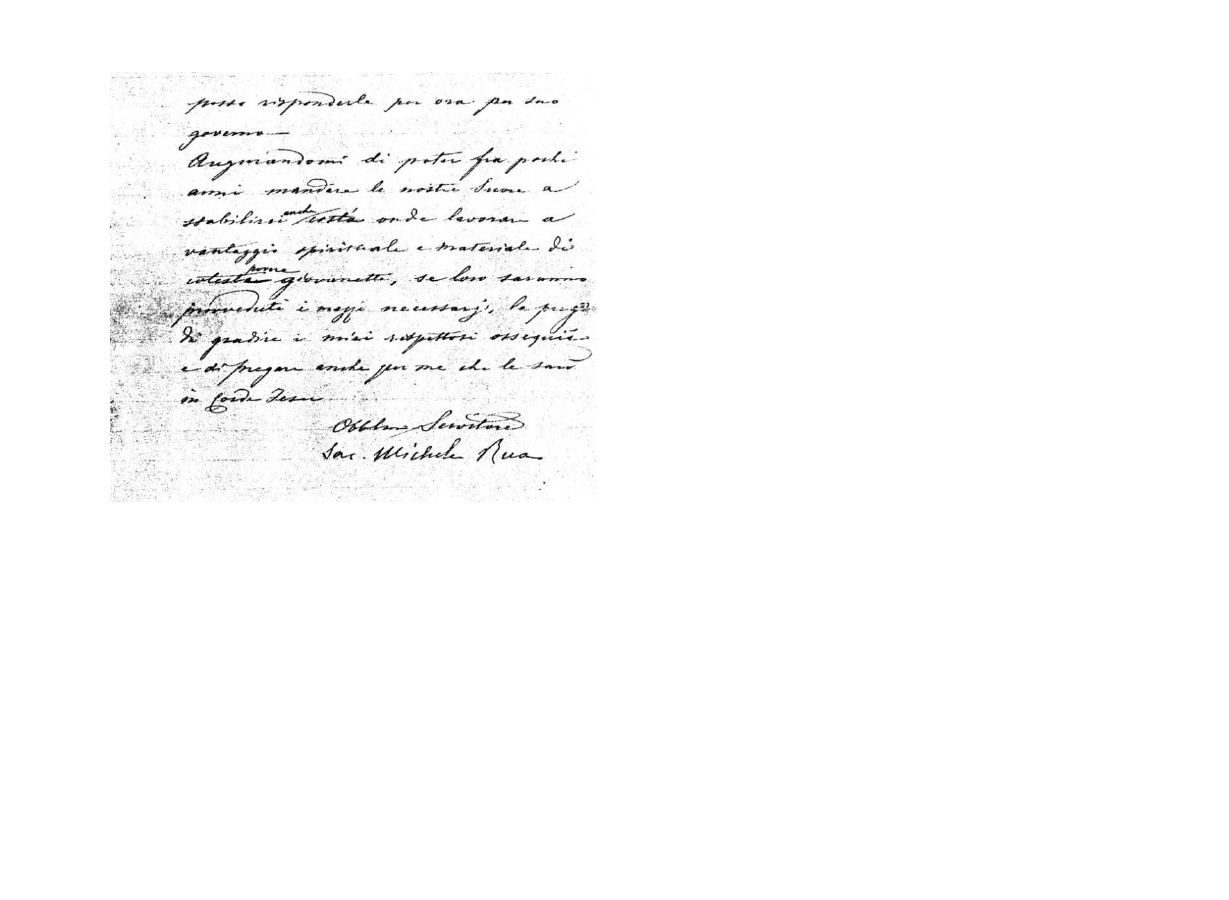 posso risponderle per ora per suo
governo —
Auguriandomi di poter fra pochi
anni mandare le nostre Suore a
stabilirsi anche costà onde lavorare a
vantaggio spirituale e materiale di
coteste povere giovanette, se loro saranno
provveduti i mezzi necessarj, la prego
di gradire i miei rispettosi ossequi
e di pregare anche per me che le sarò
in Corde Jesu
Obblmo Servitore
Sac. Michele Rua